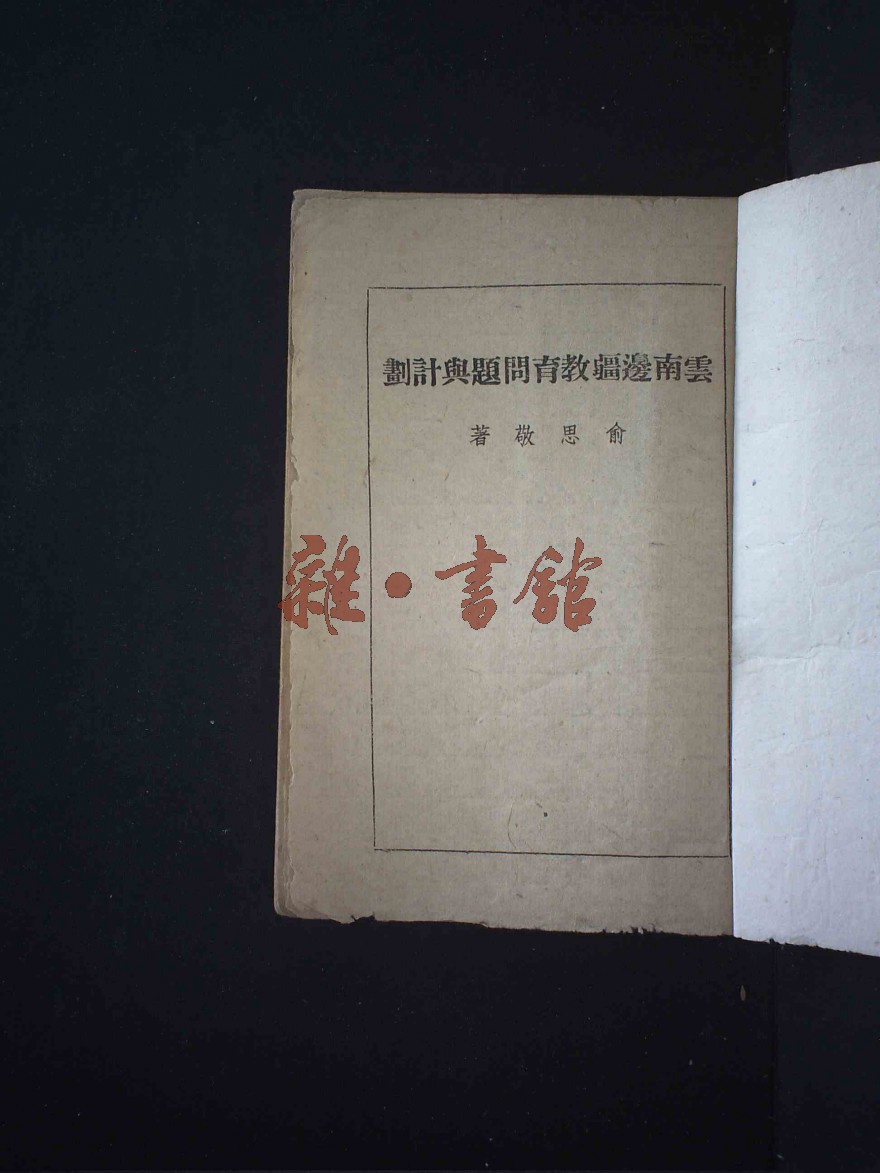 雲南邊疆教育問題與計劃
俞思敬著
雜·書館